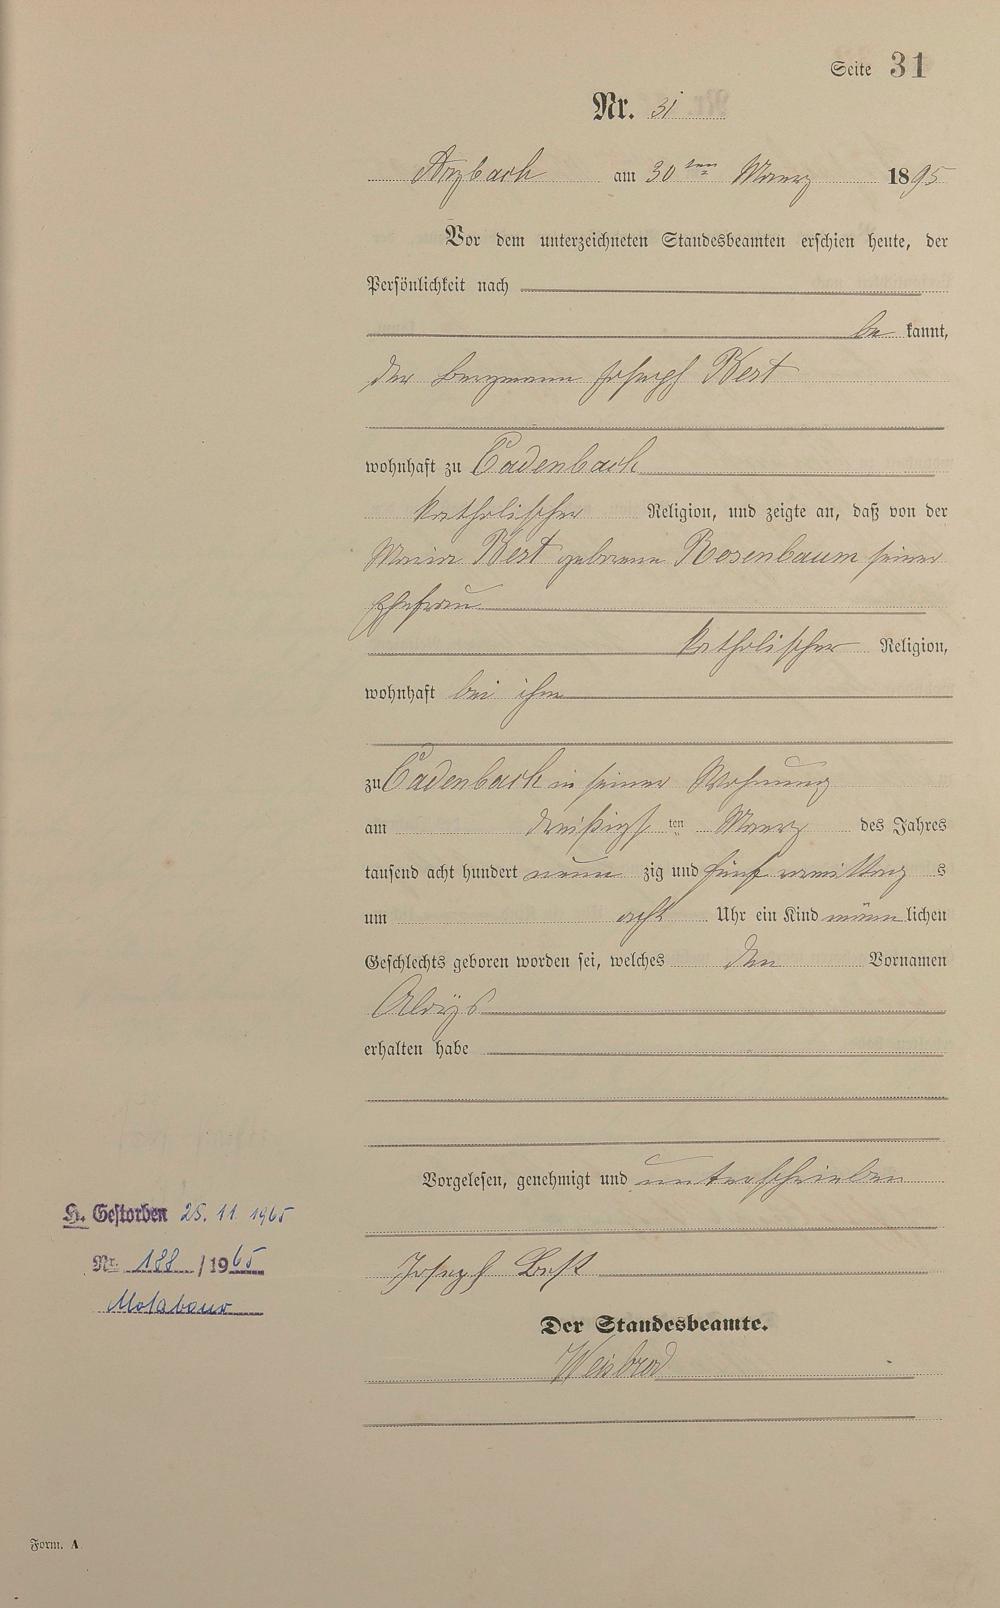 Seite 31
Nr. 31
Arzbach am 30 ten Maerz 1895
Vor dem unterzeichneten Standesbeamten erschien heute, der
Persönlichkeit nach
be kannt,
der Bergmann Joseph Best
wohnhaft zu Cadenbach
katholischer Religion, und zeigte an, daß von der
Maria Best geborene Rosenbaum seiner
Ehefrau
katholischer Religion,
wohnhaft bei ihm
zu Cadenbach in seiner Wohnung
am dreißigsten Maerz des Jahres
tausend acht hundert neun zig und fünf vormittag s
um acht Uhr ein Kind männlichen
Geschlechts geboren worden sei, welches den Vornamen
Aloys
erhalten habe
Vorgelesen, genehmigt und unterschrieben
Joseph Best
Der Standesbeamte.
Weisbrod
H. Gestorben 25. 11 1965
Nr. 188 / 1965
Form. A